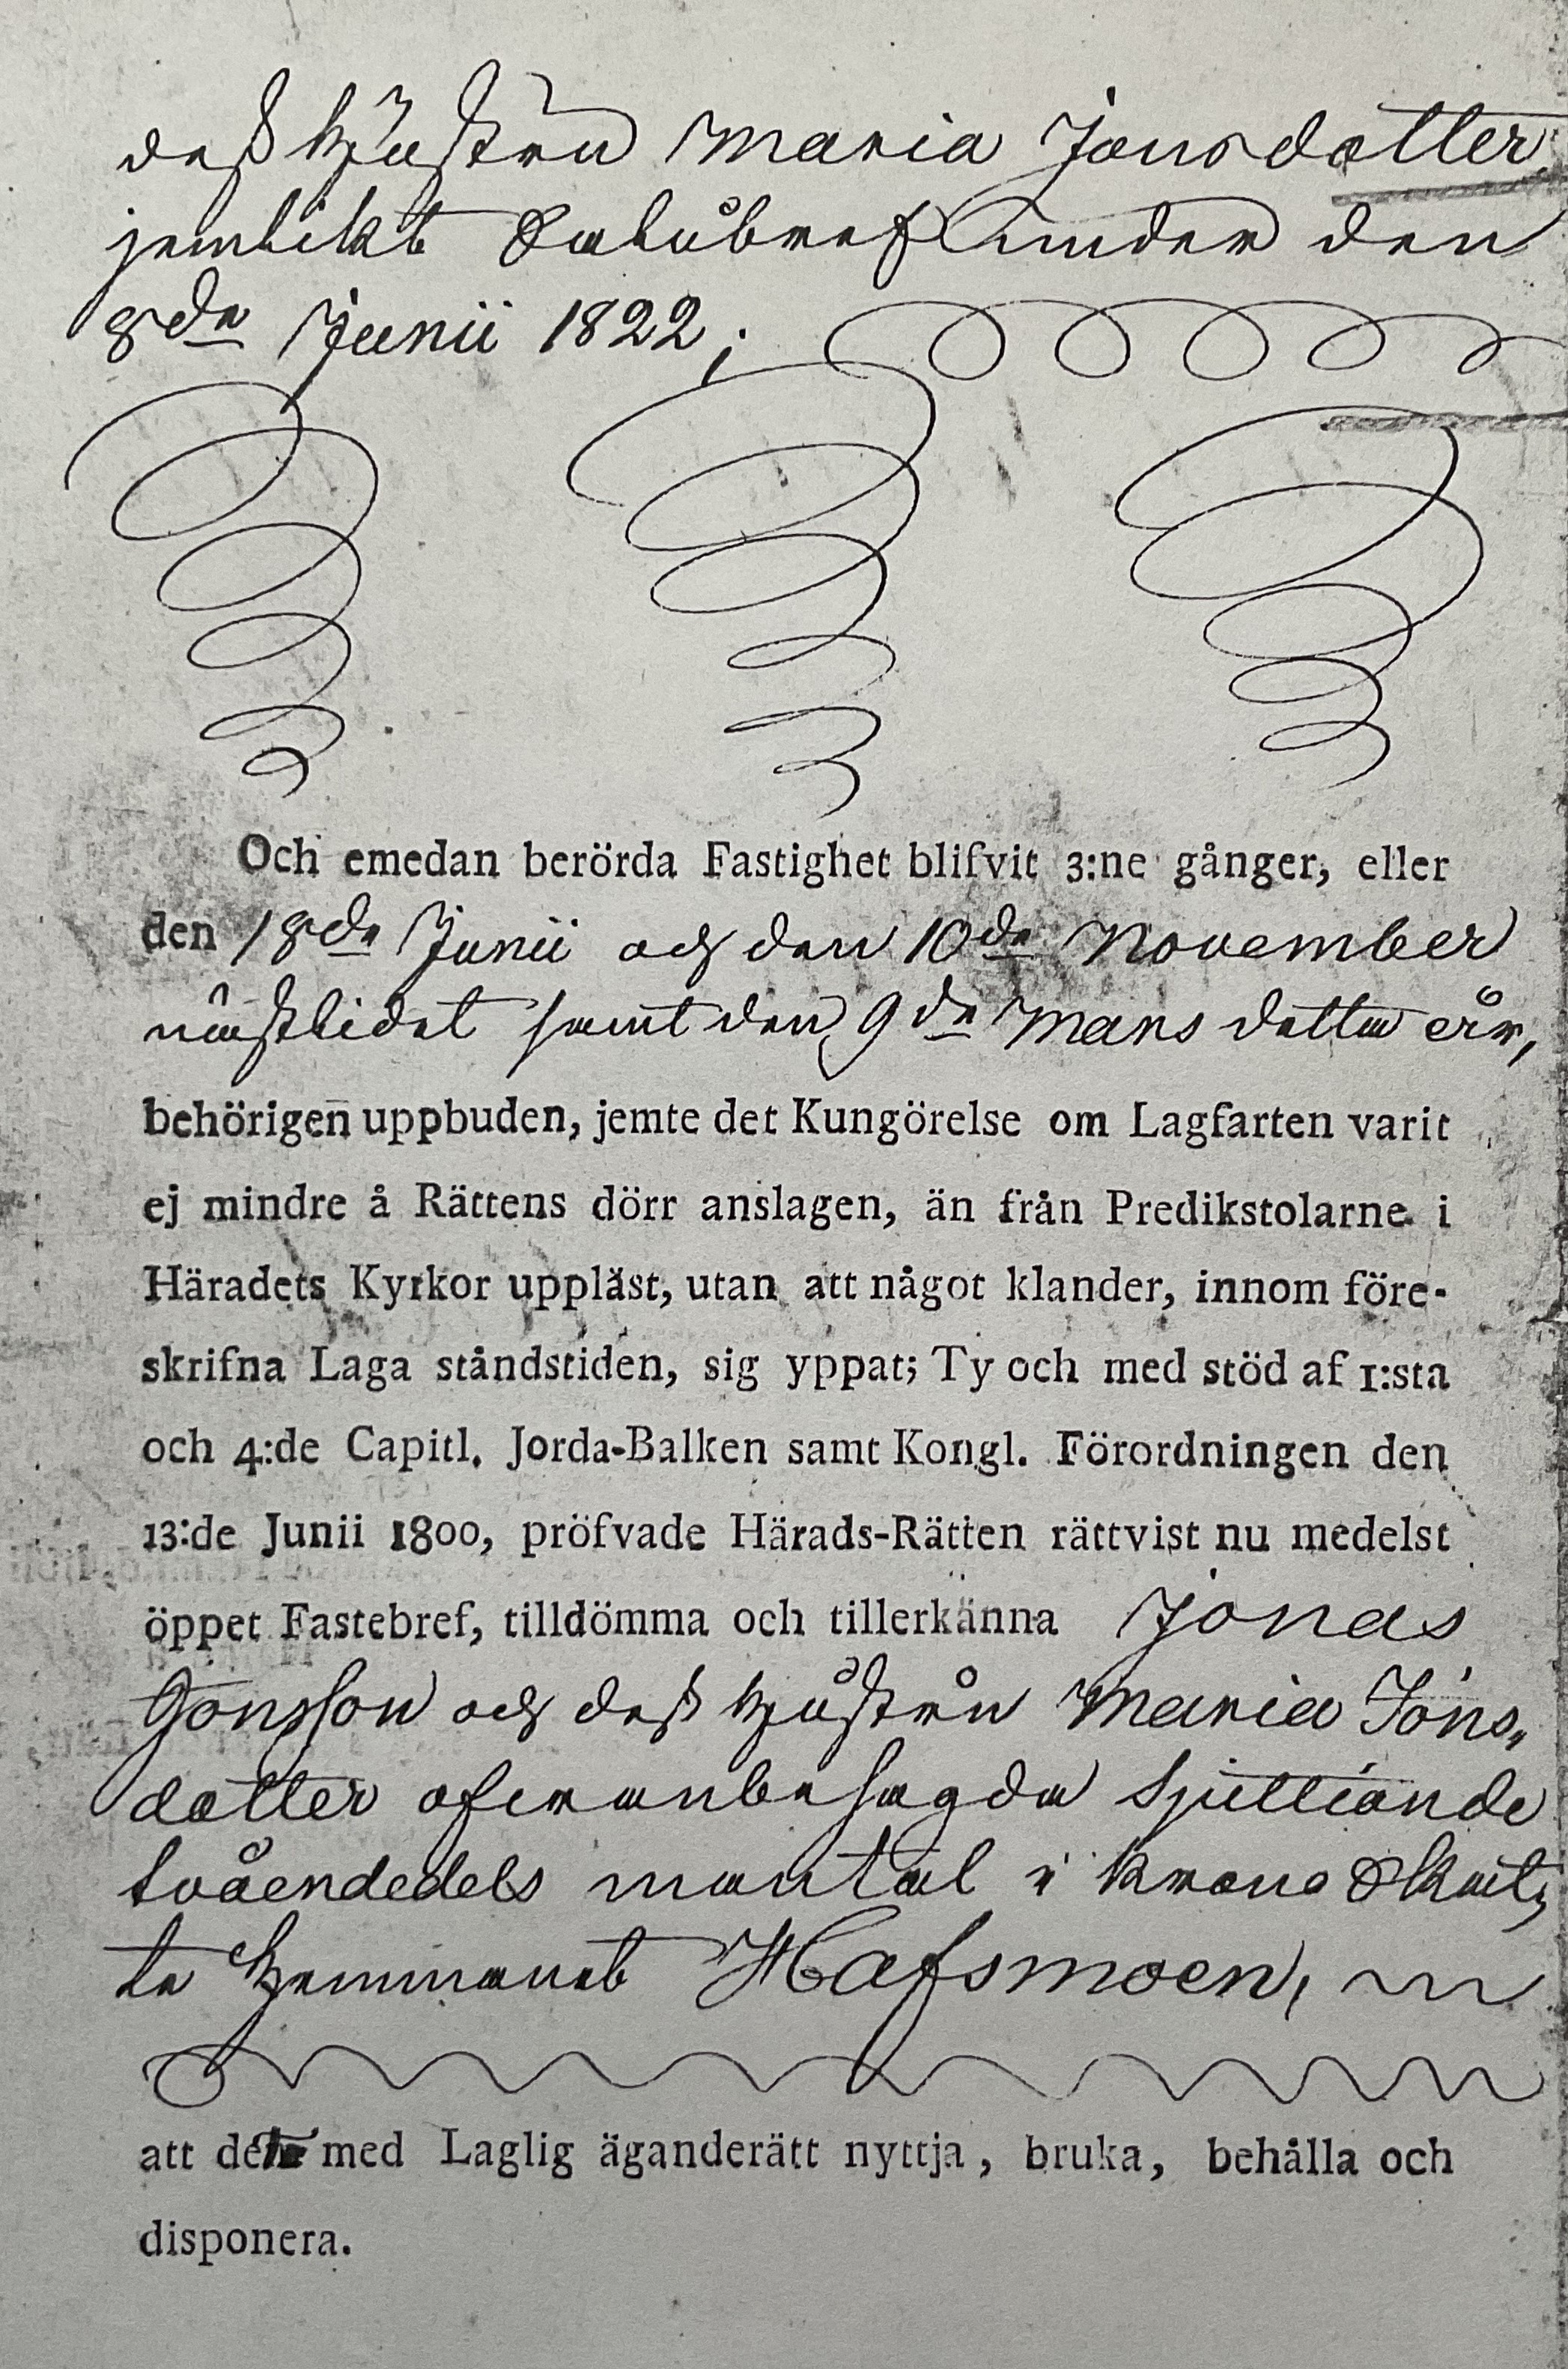 dess hustru Maria Jonsdotter,
jemlikt Salubref under den
8de Junii 1822;
Och emedan berörda Fastighet blifvit 3:ne gånger, eller
den 18de Junii och den 10de November
nästlidet samt den 9de Mars detta år,
behörigen uppbuden, jemte det Kungörelse om Lagfarten varit
ej mindre å Rättens dörr anslagen, än från Predikstolarne i
Häradets Kyrkor uppläst, utan att något klander, innom före-
skrifna Laga ståndstiden, sig yppat; Ty och med stöd af 1:sta
och 4:de Capitl. Jorda-Balken samt Kongl. Förordningen den
13:de Junii 1800, pröfvade Härads-Rätten rättvist nu medelst
öppet Fastebref, tilldömma och tillerkänna Jonas
Jonsson och dess hustru Maria Jons-
dotter ofvanbesagda
mantal i Krono Skat-
te hemmanet Hafsmoen,
att de med Laglig äganderätt nyttja, bruka, behålla och
disponera.